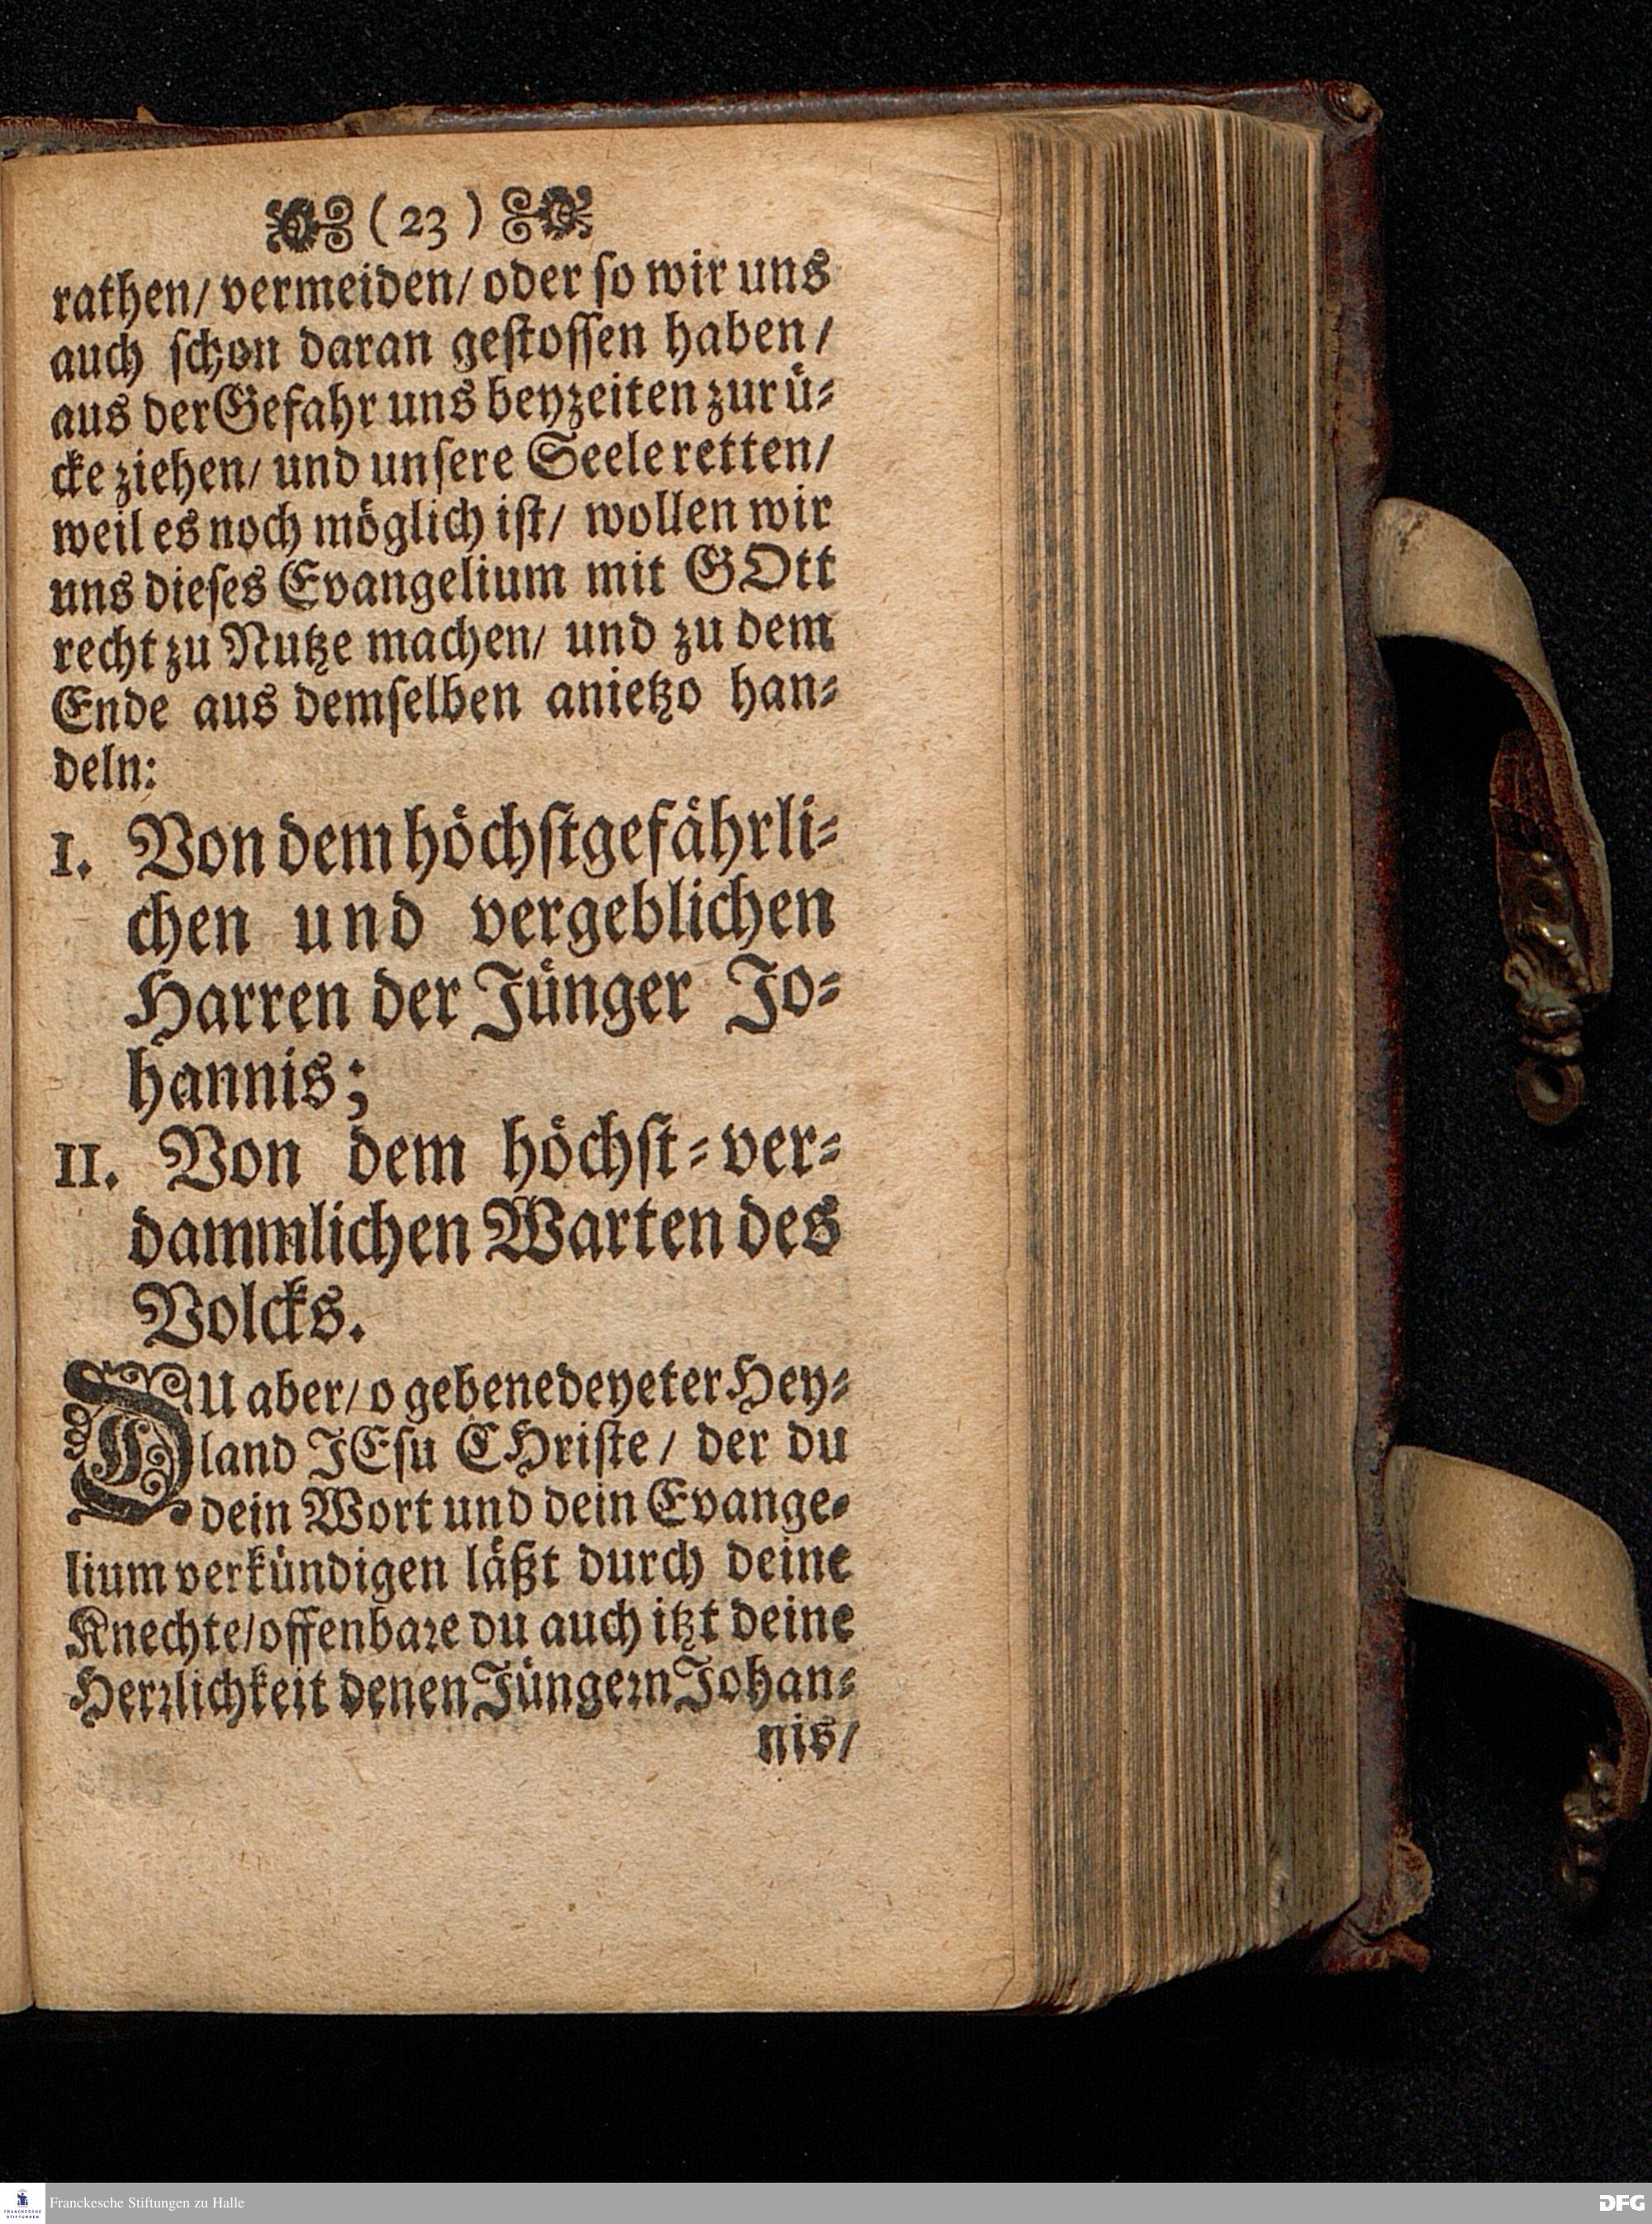 (23)
rathen/ vermeiden/ oder ſo wir uns
auch ſchon daran geſtoſſen haben/
aus der Gefahr uns beyzeiten zurü⸗
cke ziehen/ und unſere Seele retten/
weil es noch möglich iſt/ wollen wir
uns dieſes Evangelium mit GOtt
recht zu Nutze machen/ und zu dem
Ende aus demſelben anietzo han⸗
deln:
I. Von dem höchſtgefährli⸗
chen und vergeblichen
Harren der Jünger Jo⸗
hannis;
II. Von dem höchſt⸗ver⸗
dammlichen Warten des
Volcks.
DU aber/ o gebenedeyeter Hey⸗
land JEſu CHriſte/ der du
dein Wort und dein Evange⸗
lium verkündigen läßt durch deine
Knechte/ offenbare du auch itzt deine
Herrlichkeit denen Jüngern Johan⸗
nis/
Franckesche Stiftungen zu Halle
DFG